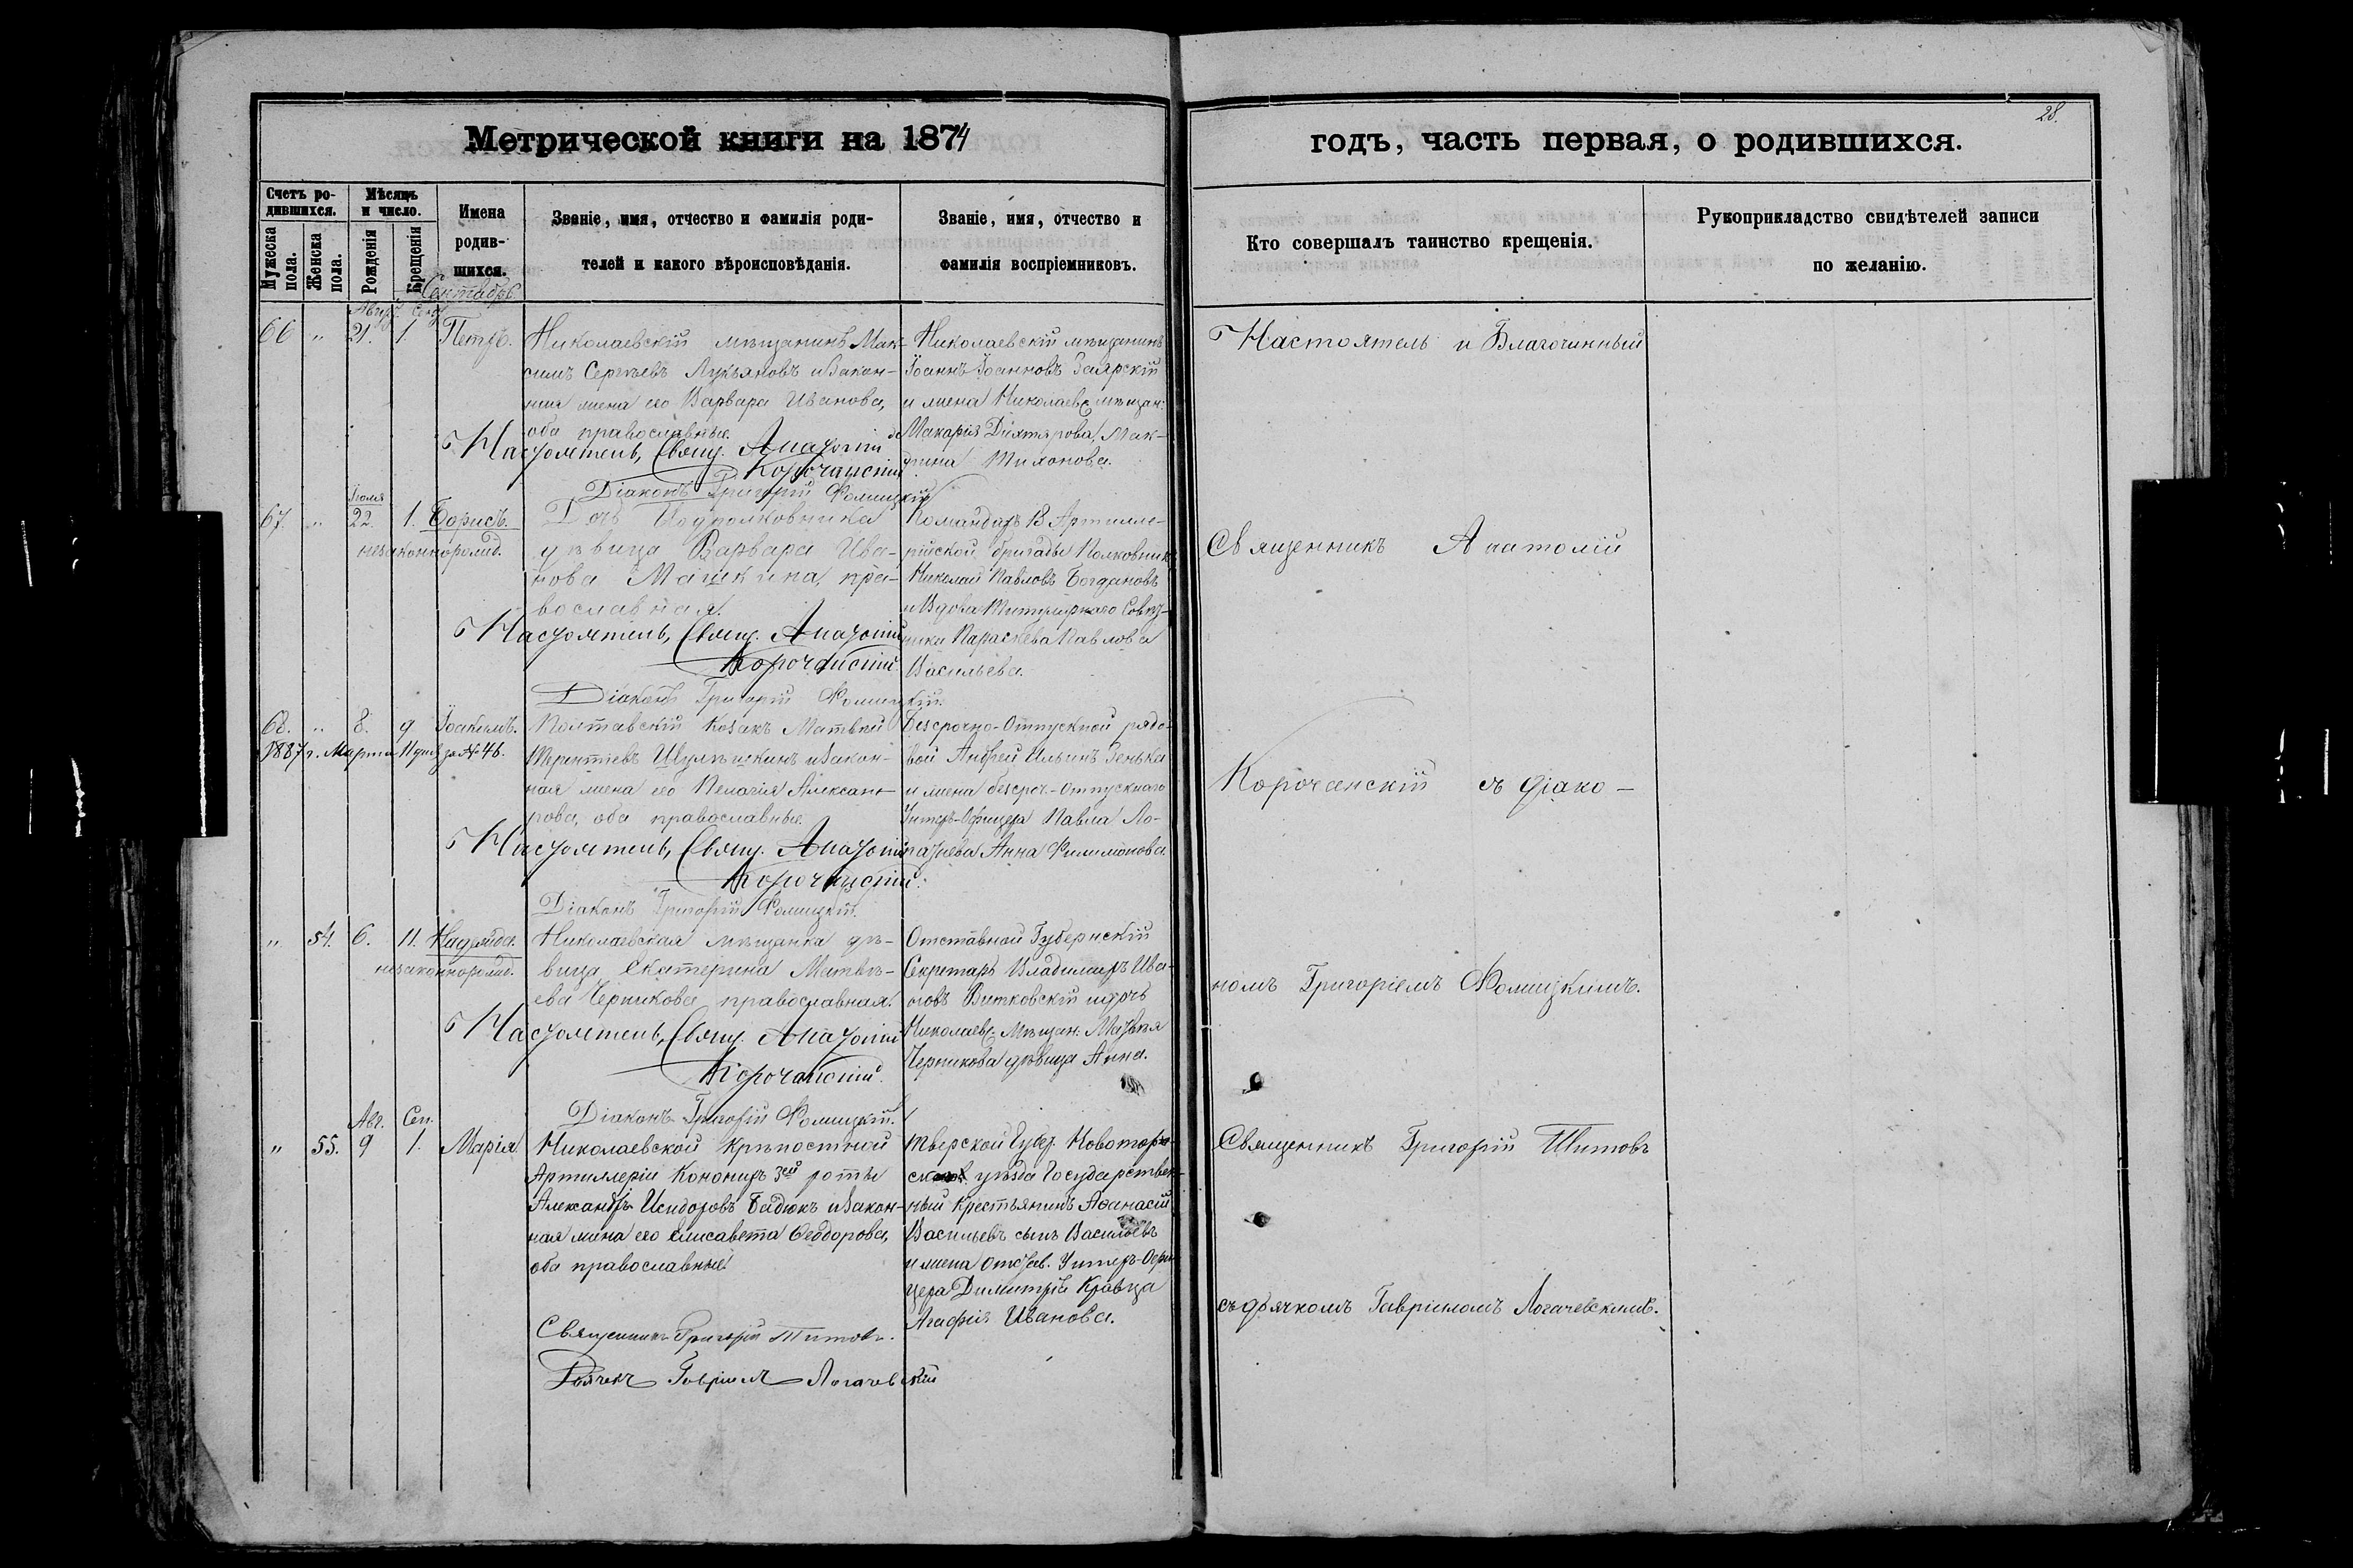 28.
Метрической книги на 1874
годъ, часть первая, о родившихся.
Счетъ ро-
дившихся.
Мужеска
пола.
Женска
пола.
Мѣсяцъ
и число.
Рожденія
Крещенія
Имена
родив-
шихся.
Званіе, имя, отчество и фамилія роди-
телей и какого вѣроисповѣданія.
Званіе, имя, отчество и
фамилія воспріемниковъ.
Кто совершалъ таинство крещенія.
Рукоприкладство свидѣтелей записи
по желанію.
Сентябрь
66 " 21. 1. Петръ.
Николаевскій мѣщанинъ Мак-
симъ Сергѣевъ Лукьяновъ и закон-
ная жена его Варвара Иванова,
оба православные.
Настоятель, Свящ. Анатолій
Корочанскій
Діаконъ Григорій Фомицкій
Николаевскій мѣщанинъ
Іоаннъ Іоанновъ Заярскій
и жена Николаевс. мѣщан:
Макарія Дихтярова, Мак-
рина Тихонова.
Іюля
67. " 22. 1. Борисъ.
незаконнорожд.
Дочь Подполковника
дѣвица Варвара Ива-
нова Машкина, пра-
вославная.
Настоятель, Свящ. Анатолій
Корочанскій.
Діаконъ Григорій Фомицкій.
Командиръ 13 Артилле-
рійской бригады Полковникъ
Николай Павловъ Богдановъ
и Вдова Титулярнаго Совѣт-
ника Параскева Павлова
Васильева.
68. " 8. 9 Іоакимъ.
1887 г. Марта 11 дня за № 46.
Полтавскій Козакъ Матвѣй
Терентьевъ Шулѣшкинъ и закон-
ная жена его Пелагія Александ-
рова, оба православные.
Настоятель, Свящ. Анатолій
Корочанскій.
Діаконъ Григорій Фомицкій.
Безсрочно-Отпускной рядо-
вой Андрей Ильинъ Зенька
и жена безсроч.-отпускнаго
Унтеръ-Офицера Павла Ло-
патнева Анна Филимонова.
" 54. 6. 11. Надежда.
незаконнорожд.
Николаевская мѣщанка дѣ-
вица Екатерина Матвѣ-
ева Черникова православная.
Настоятель, Свящ. Анатолій
Корочанскій.
Діаконъ Григорій Фомицкій.
Отставной Губернскій
Секретарь Владимиръ Ива-
новъ Витковскій и дочь
Николаевс. Мѣщан. Матвѣя
Черникова дѣвица Анна.
Авг. Сен.
" 55. 9 1. Марія.
Николаевской Крѣпостной
Артиллеріи Конониръ 3ей роты
Александръ Исидоровъ Бадюкъ и закон-
ная жена его Елисавета Ѳеодорова,
оба православные
Священникъ Григорій Титовъ.
Дьячекъ Гавріилъ Логачевскій
Тверской Губер. Новоторж-
уѣзда Государствен-
ный крестьянинъ Аѳанасій
Васильевъ сынъ Васильевъ
и жена отстав. Унтеръ-Офи-
цера Димитрія Кравца
Агафія Иванова.
Настоятель и Благочинный
Священникъ Анатолій
Корочанскій съ діако-
номъ Григоріемъ Фомицкимъ.
Священникъ Григорій Титовъ
съ дьячкомъ Гавріиломъ Логачевскимъ.